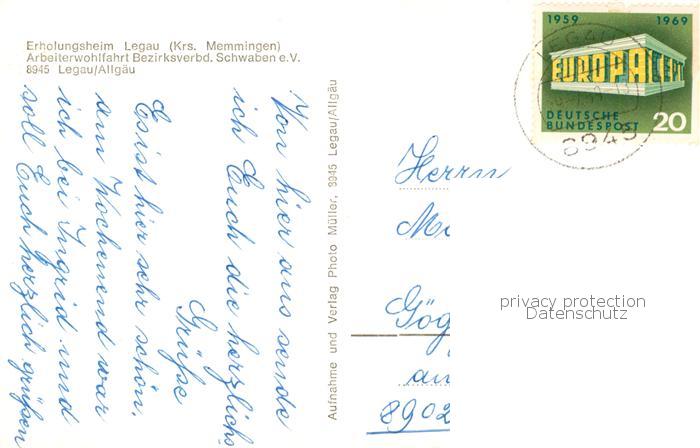 Erholungsheim Legau (Krs. Memmingen)
Arbeiterwohlfahrt Bezirksverbd. Schwaben e.V.
8945 Legau/Allgäu
Von hier aus sende
ich Euch die herzlichs
Grüße
Es ist hier sehr schön,
am Wochenend war
ich bei Ingrid und
soll Euch herzlich grüßen
Aufnahme und Verlag Photo Müller, 8945 Legau/Allgäu
1959 1969
EUROPA CEPT
DEUTSCHE
BUNDESPOST 20
LEGAU
8945
Herrn
Mi
Gög
an
8902
privacy protection
Datenschutz